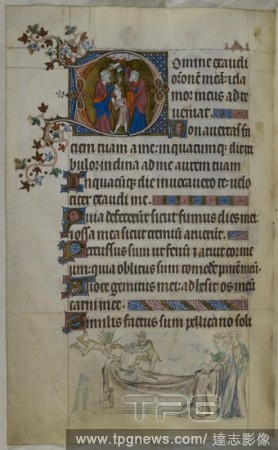 omine exaudi
oronem meā: ⁊ cla
mor meus ad te
ueniat.
on auertas fa
ciem tuam a me: in quacumqꝫ die tri
bulor: inclina ad me aurem tuam
In quacūqꝫ die inuocauero te: uelo
citer exaudi me.
Quia defecerūt sicut fumus dies mei:
⁊ ossa mea sicut cremiū aruerūt.
Percussus sum ut fenū ⁊ aruit cor me
um: quia oblitus sum comedē panē meū.
A uoce gemitus mei: adhesit os meū
carni mee.
Similis factus sum pellicano soli
TPG
www.tpgnews.com/達志影像